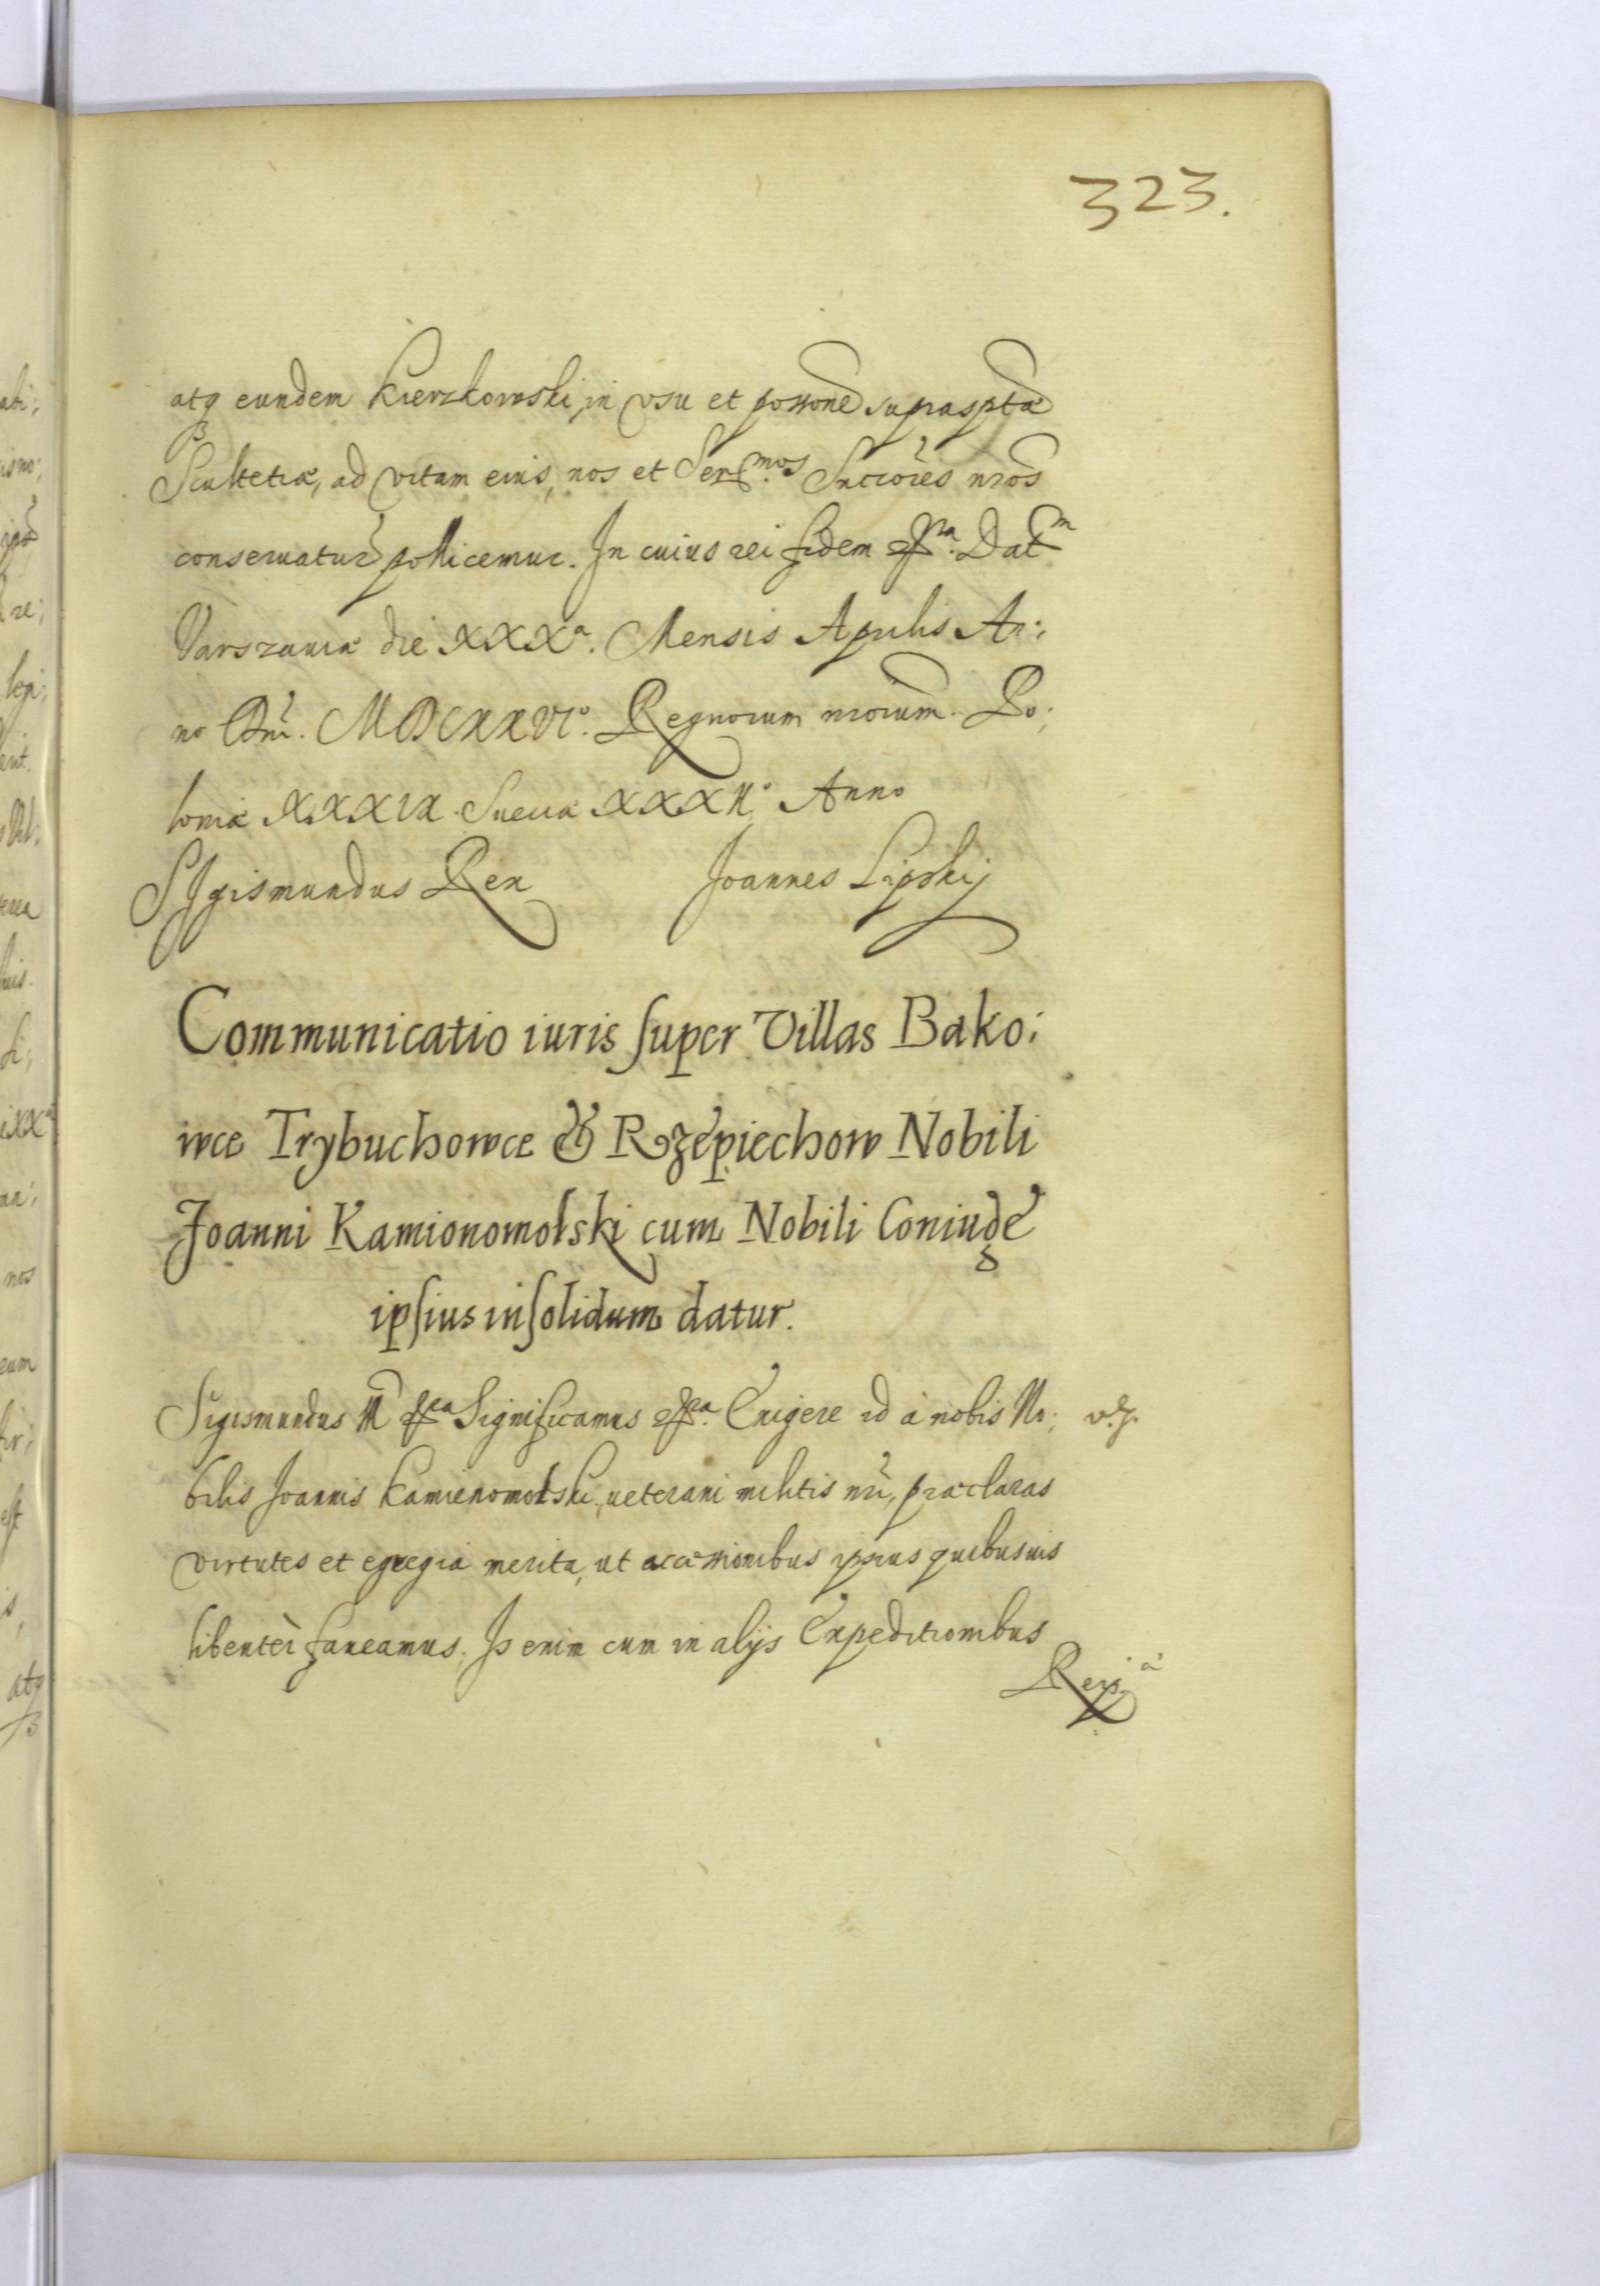 323.
atq eundem Kierzkowski, in vsu et possone supraspta
Scultetiæ, ad vitam eius, nos et Ser.mos Succores nros
conseruatur pollicemur. In cuius rei fidem etc.ra Datm
Varszauiæ die XXXa. Mensis Aprilis An:
no Dni. MDCXXVIo. Regnorum nrorum. Po:
loniæ XXXIX. Sueciæ XXXIIo Anno
SIgismundus Rex Joannes Lipskij
Communicatio iuris super Villas Bako:
wce Trybuchowce & Rzepiechow Nobili
Joanni Kamionomolski cum Nobili Coniuge
ipsius insolidum datur.
Sigismundus III etc.ra Significamus etc.ra Exigere id à nobis No:
bilis Joannis Kamienomolski, ueterani militis nri, præclaras
virtutes et egregia merita, ut accessionibus ipsius quibusuis
libenter faueamus. Is enim cum in alijs Expeditionibus